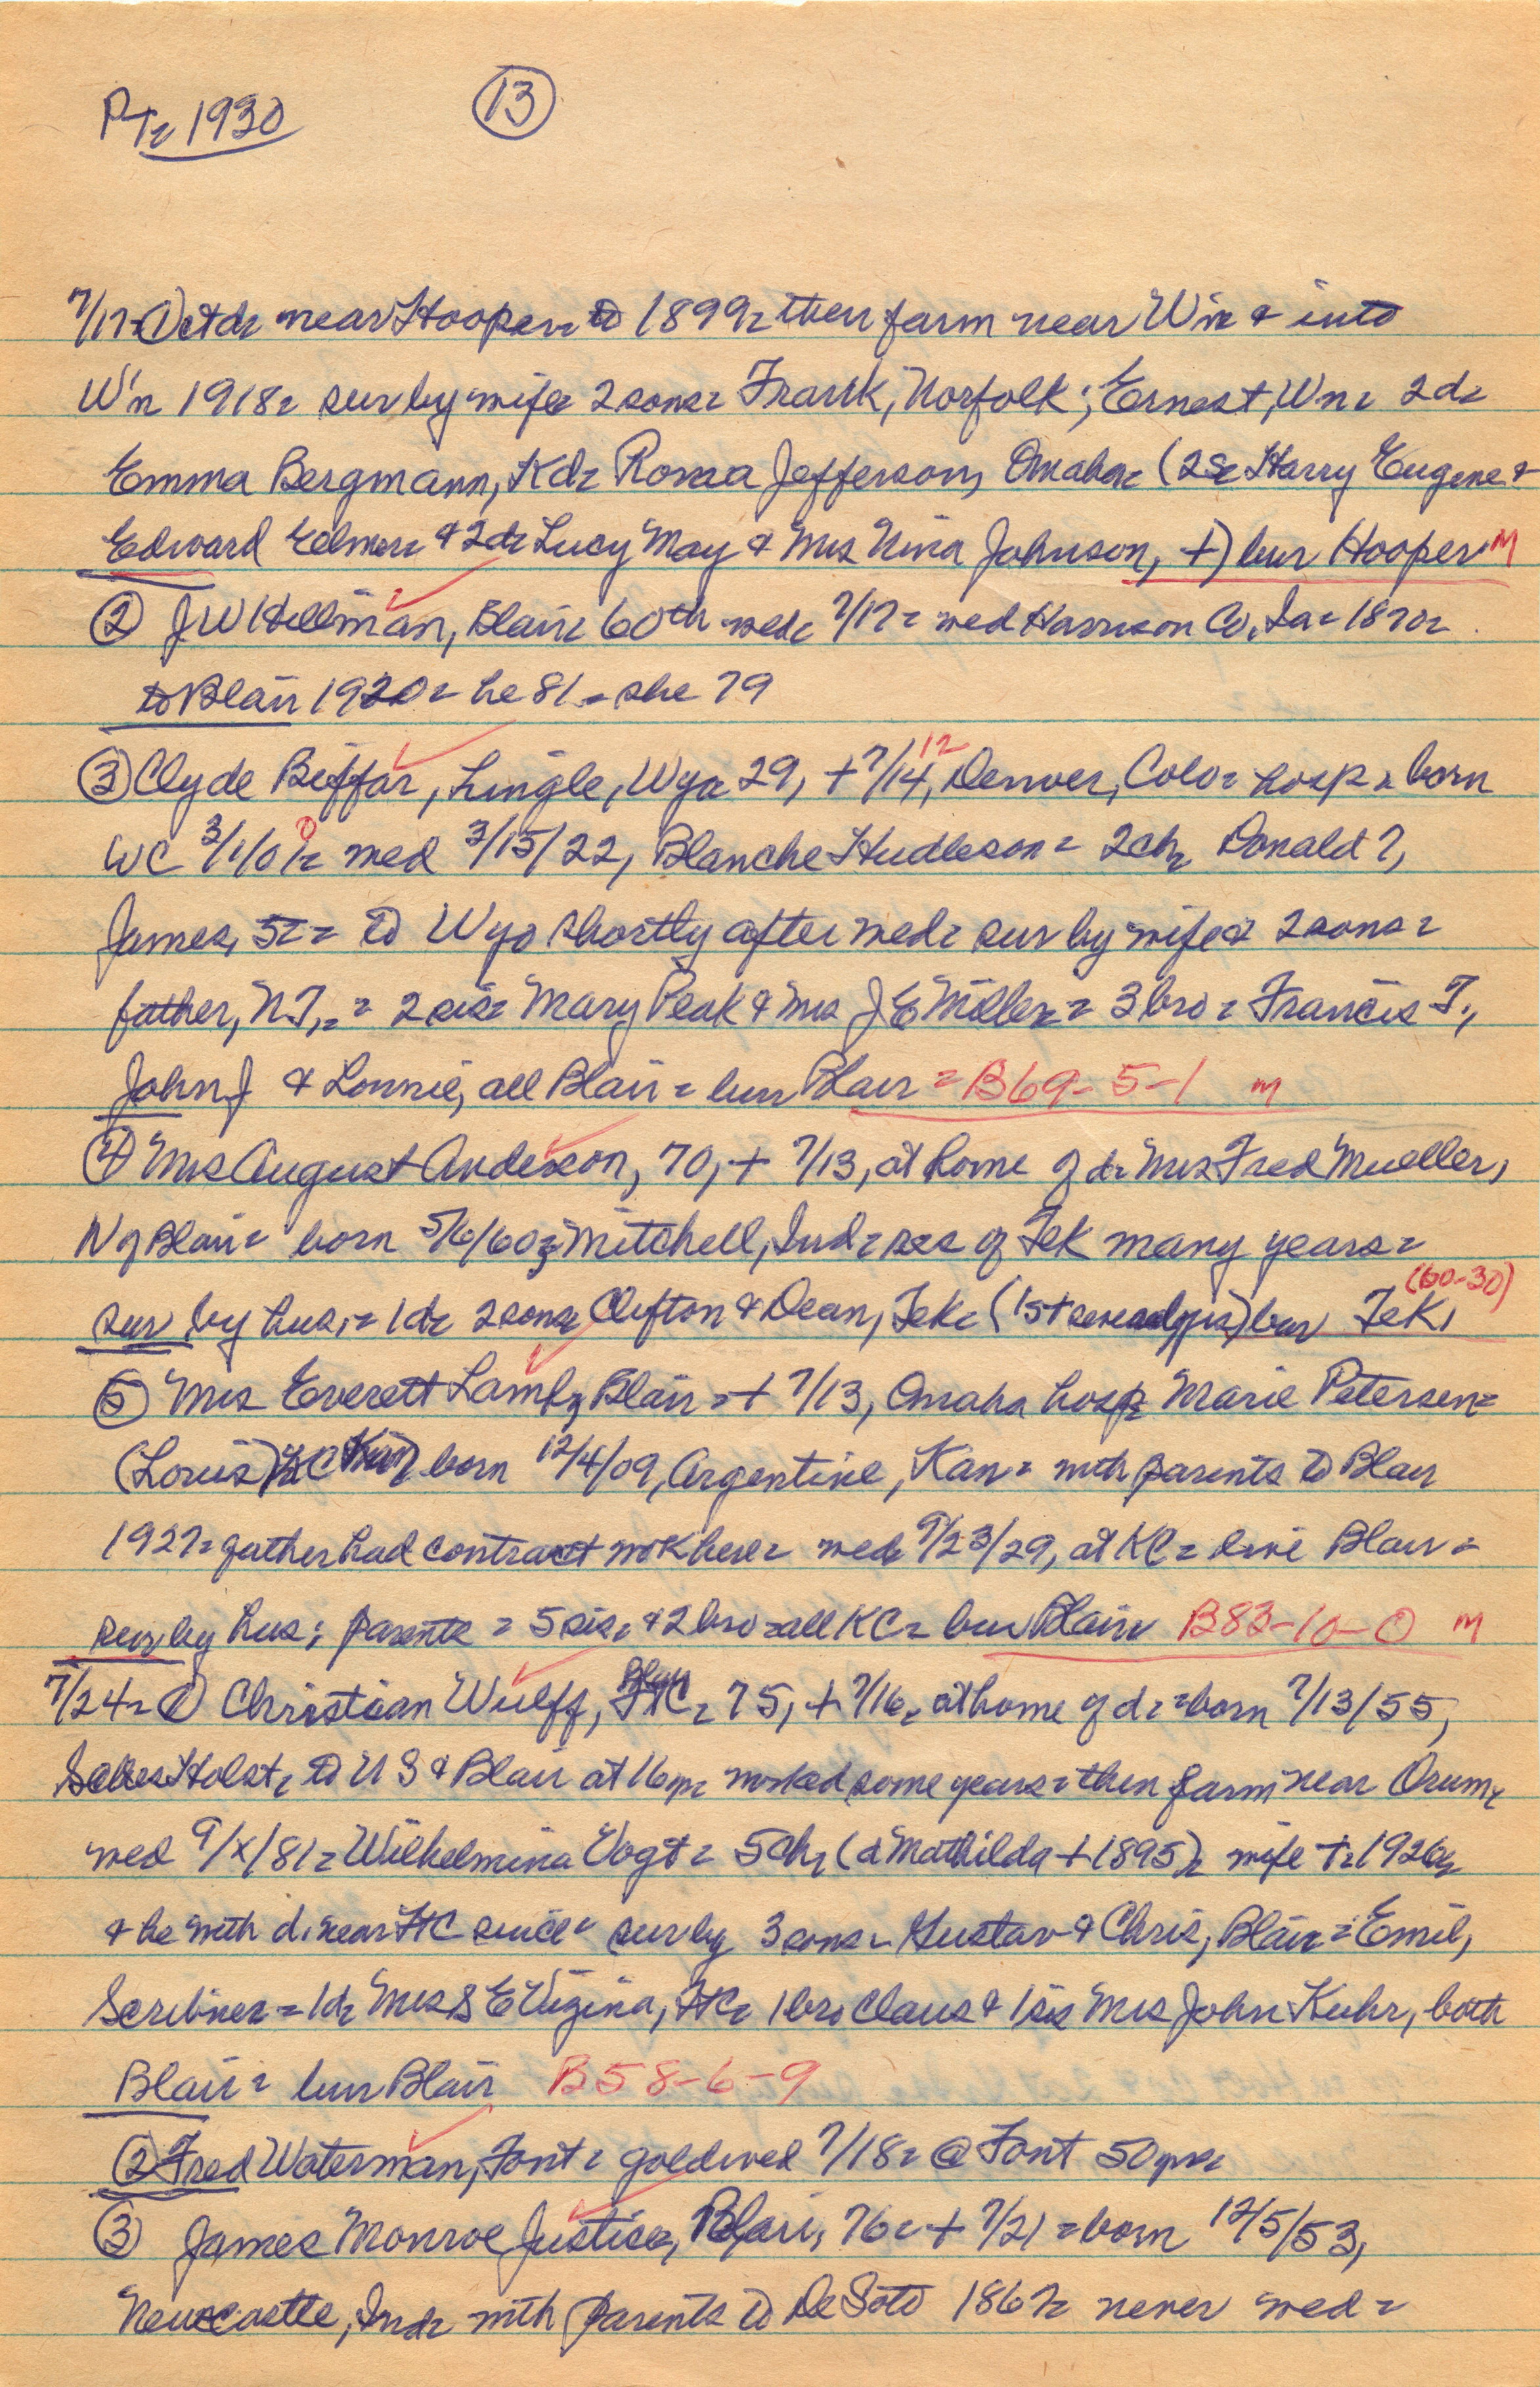 PT= 1930 (13)
7/17= ① ctd= near Hooper= to 1899= then farm near Wn & into
Wn 1918= sur by wife= 2 sons= Frank, Norfolk; Ernest, Wn= 2d=
Emma Bergmann, Kd= Roma Jefferson, Omaha= (2s= Harry Eugene &
Edward Elmer= & 2d= Lucy May & Mrs Nina Johnson, +) bur Hooper= M
② J W Hillman, Blair= 60th wed= 7/17= wed Harrison Co, Ia= 1870=
to Blair 1920= he 81= she 79
③ Clyde Biffar, Lingle, Wyo= 29, + 7/14, 12 Denver, Colo= hosp= born
WC 3/1/01= 0 wed 3/15/22, Blanche Hudleson= 2ch= Donald 7,
James, 5= = to Wyo shortly after wed= sur by wife & 2 sons=
father, N T, = = 2 sis= Mary Peak & Mrs J E Miller= 3 bro= Francis T.,
John J & Lonnie, all Blair= bur Blair = B69-5-1 M
④ Mrs August Anderson, 70, + 7/13, at home of d= Mrs Fred Mueller,
N of Blair= born 5/6/60= Mitchell, Ind= res of Tek many years=
sur by hus,= 1d= 2 sons= Clifton & Dean, Tek= (1st) bur Tek, (60-30)
⑤ Mrs Everett Lamb, Blair= + 7/13, Omaha hosp= Marie Petersen=
(Louis) KC Kan) born 12/4/09, Argentine, Kan= with parents to Blair
1927= father had contract work here= wed= 9/23/29, at KC= live Blair=
sur by hus; parents = 5 sis, & 2 bro= all KC= bur Blair= B83-10-0 M
7/24= ① Christian Wulff, Blair FtC= 75, + 7/16= at home of d= = born 7/13/55,
Schles Holst= to U S & Blair at 16yr= worked some years= then farm near Orum=
wed 9/X/81= Wilhelmina Vogt= 5ch= (d Mathilda + 1895)= wife += 1926=
& he with d. near FtC since= sur by 3 sons= Gustav & Chris, Blair= Emil,
Scribner= 1d= Mrs S E Vizina, FtC= 1 bro Claus & 1 sis Mrs John Kuhr, both
Blair= bur Blair B58-6-9
② Fred Waterman, Font= gold wed 7/18= @ Font 50 yrs=
③ James Monroe Justice, Blair, 76= + 7/21= born 12/5/53,
Newcastle, Ind= with parents to De Soto 1867= never wed=